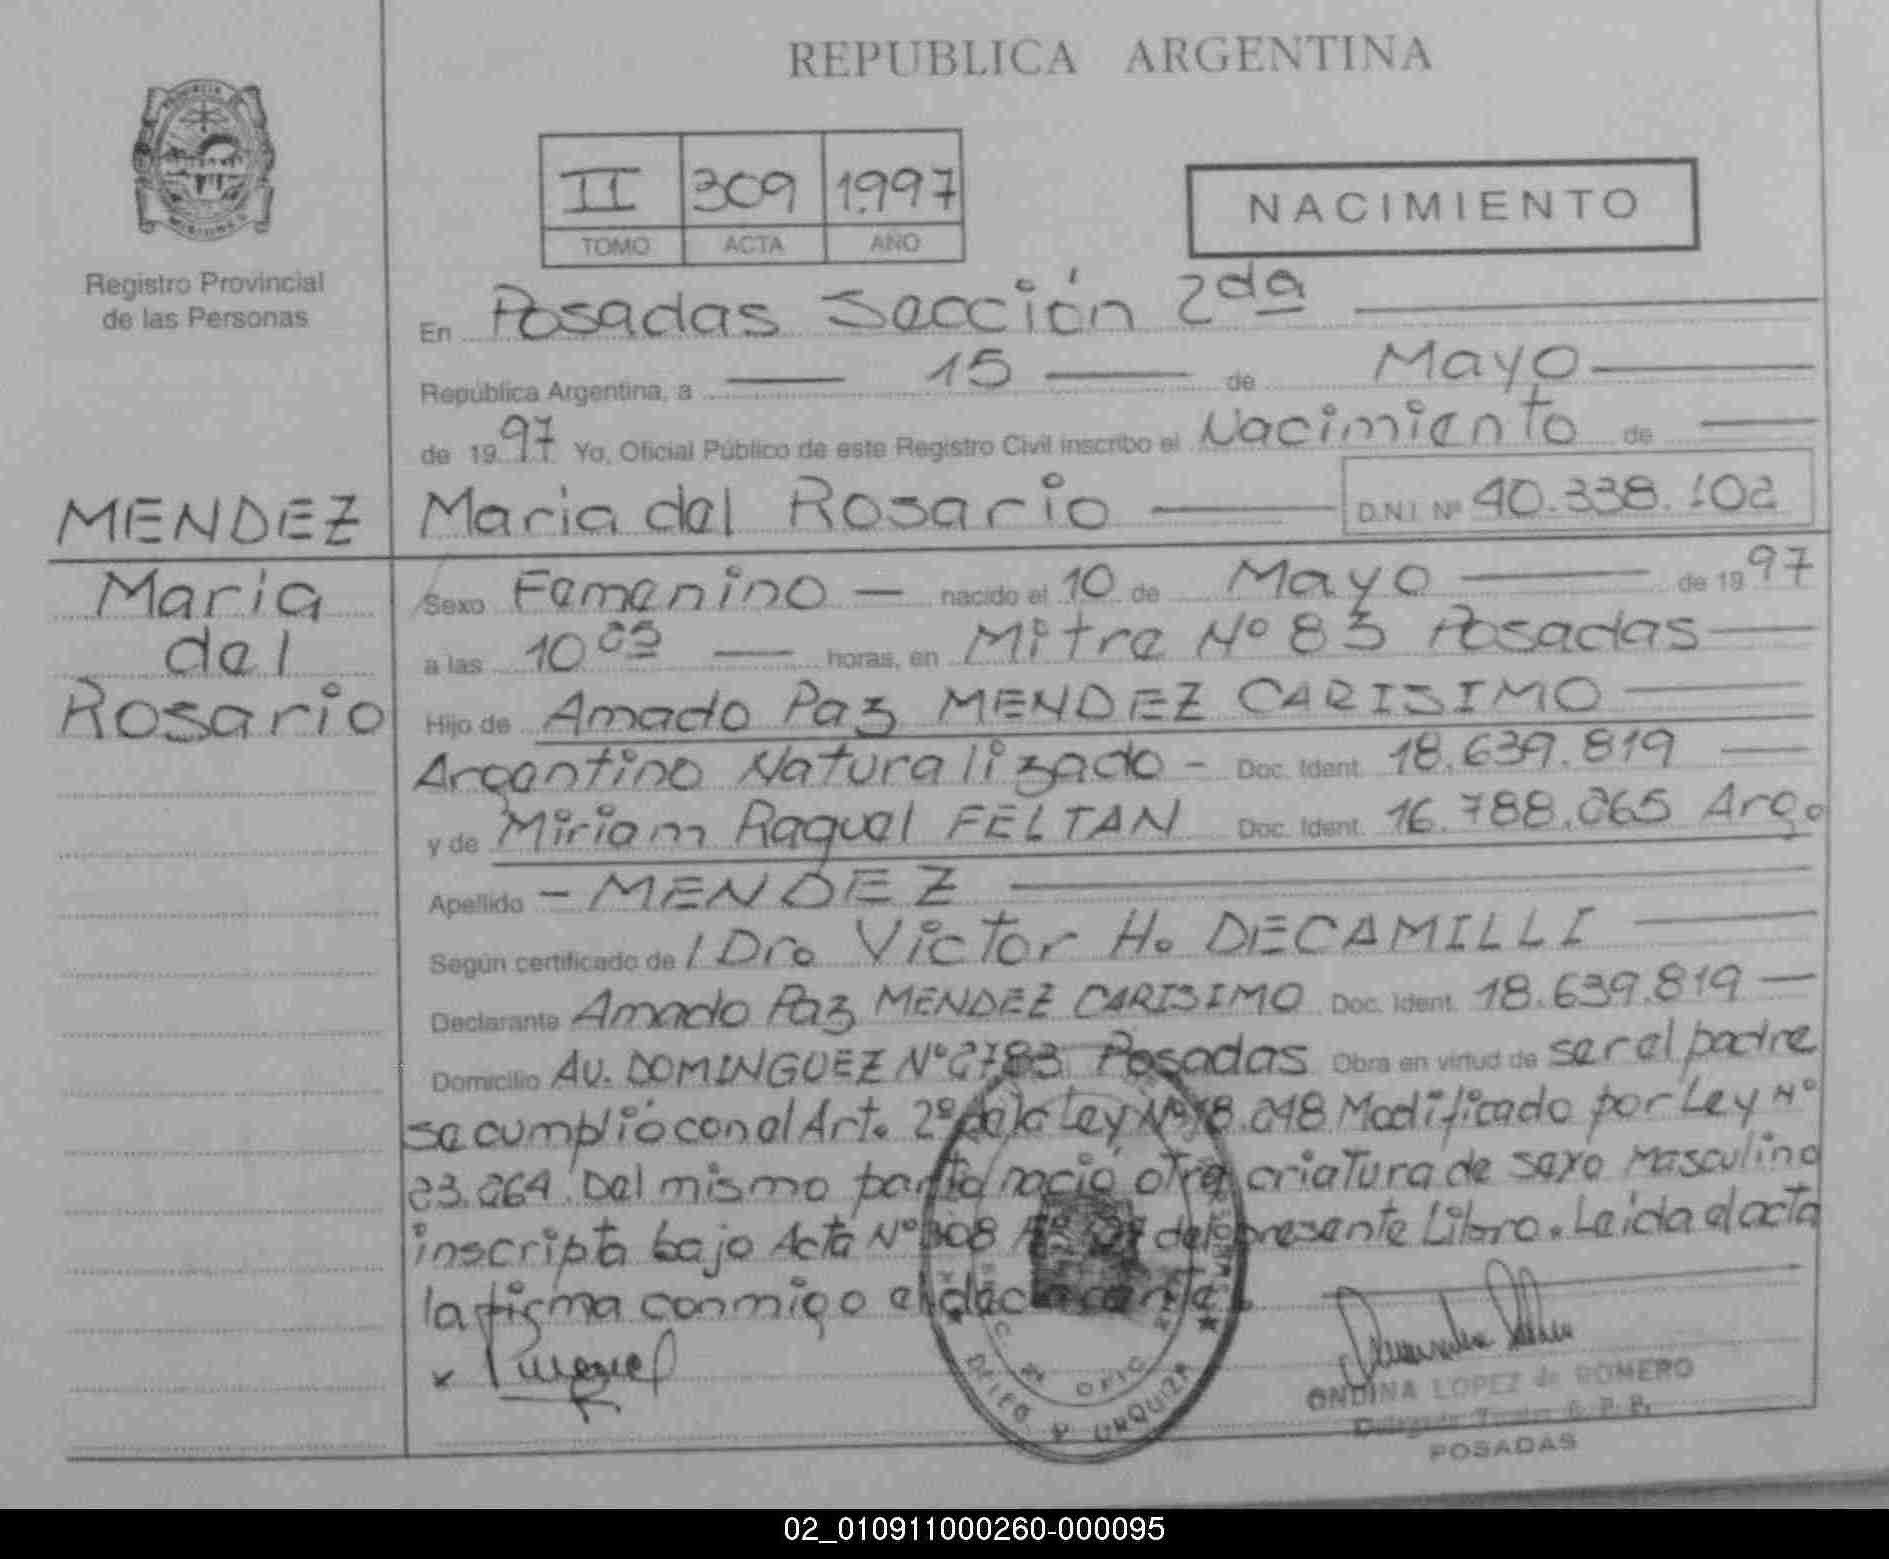 REPUBLICA ARGENTINA
PROVINCIA DE
MISIONES
Registro Provincial
de las Personas
II 309 1.997
TOMO ACTA AÑO
NACIMIENTO
En Posadas Sección 2da
República Argentina, a 15 de Mayo
de 1997 Yo, Oficial Público de este Registro Civil inscribo el Nacimiento de
MENDEZ Maria del Rosario D.N.I. Nº 40.338.102
Maria
del
Rosario
Sexo Femenino nacido el 10 de Mayo de 1997
a las 10 horas, en Mitre Nº 83 Posadas
Hijo de Amado Paz MENDEZ CARISIMO
Argentino Naturalizado - Doc. Ident. 18.639.819
y de Miriam Raquel FELTAN Doc. Ident. 16.788.265 Arg.
Apellido - MENDEZ
Según certificado de l Dro Victor H. DECAMILLI
Declarante Amado Paz MENDEZ CARISIMO Doc. Ident. 18.639.819
Domicilio AV. DOMINGUEZ Nº 2783 Posadas Obra en virtud de ser el padre
se cumplió con el Art. 2º de la Ley Nº 18.248 Modificado por Ley Nº
23.264. Del mismo parto nació otra criatura de sexo Masculino
inscripta bajo Acta Nº 308 del presente Libro. Leida el acta
la firma conmigo el declarante.
OFIC
URQUIZA
ONDINA LOPEZ de ROMERO
POSADAS
02_010911000260-000095